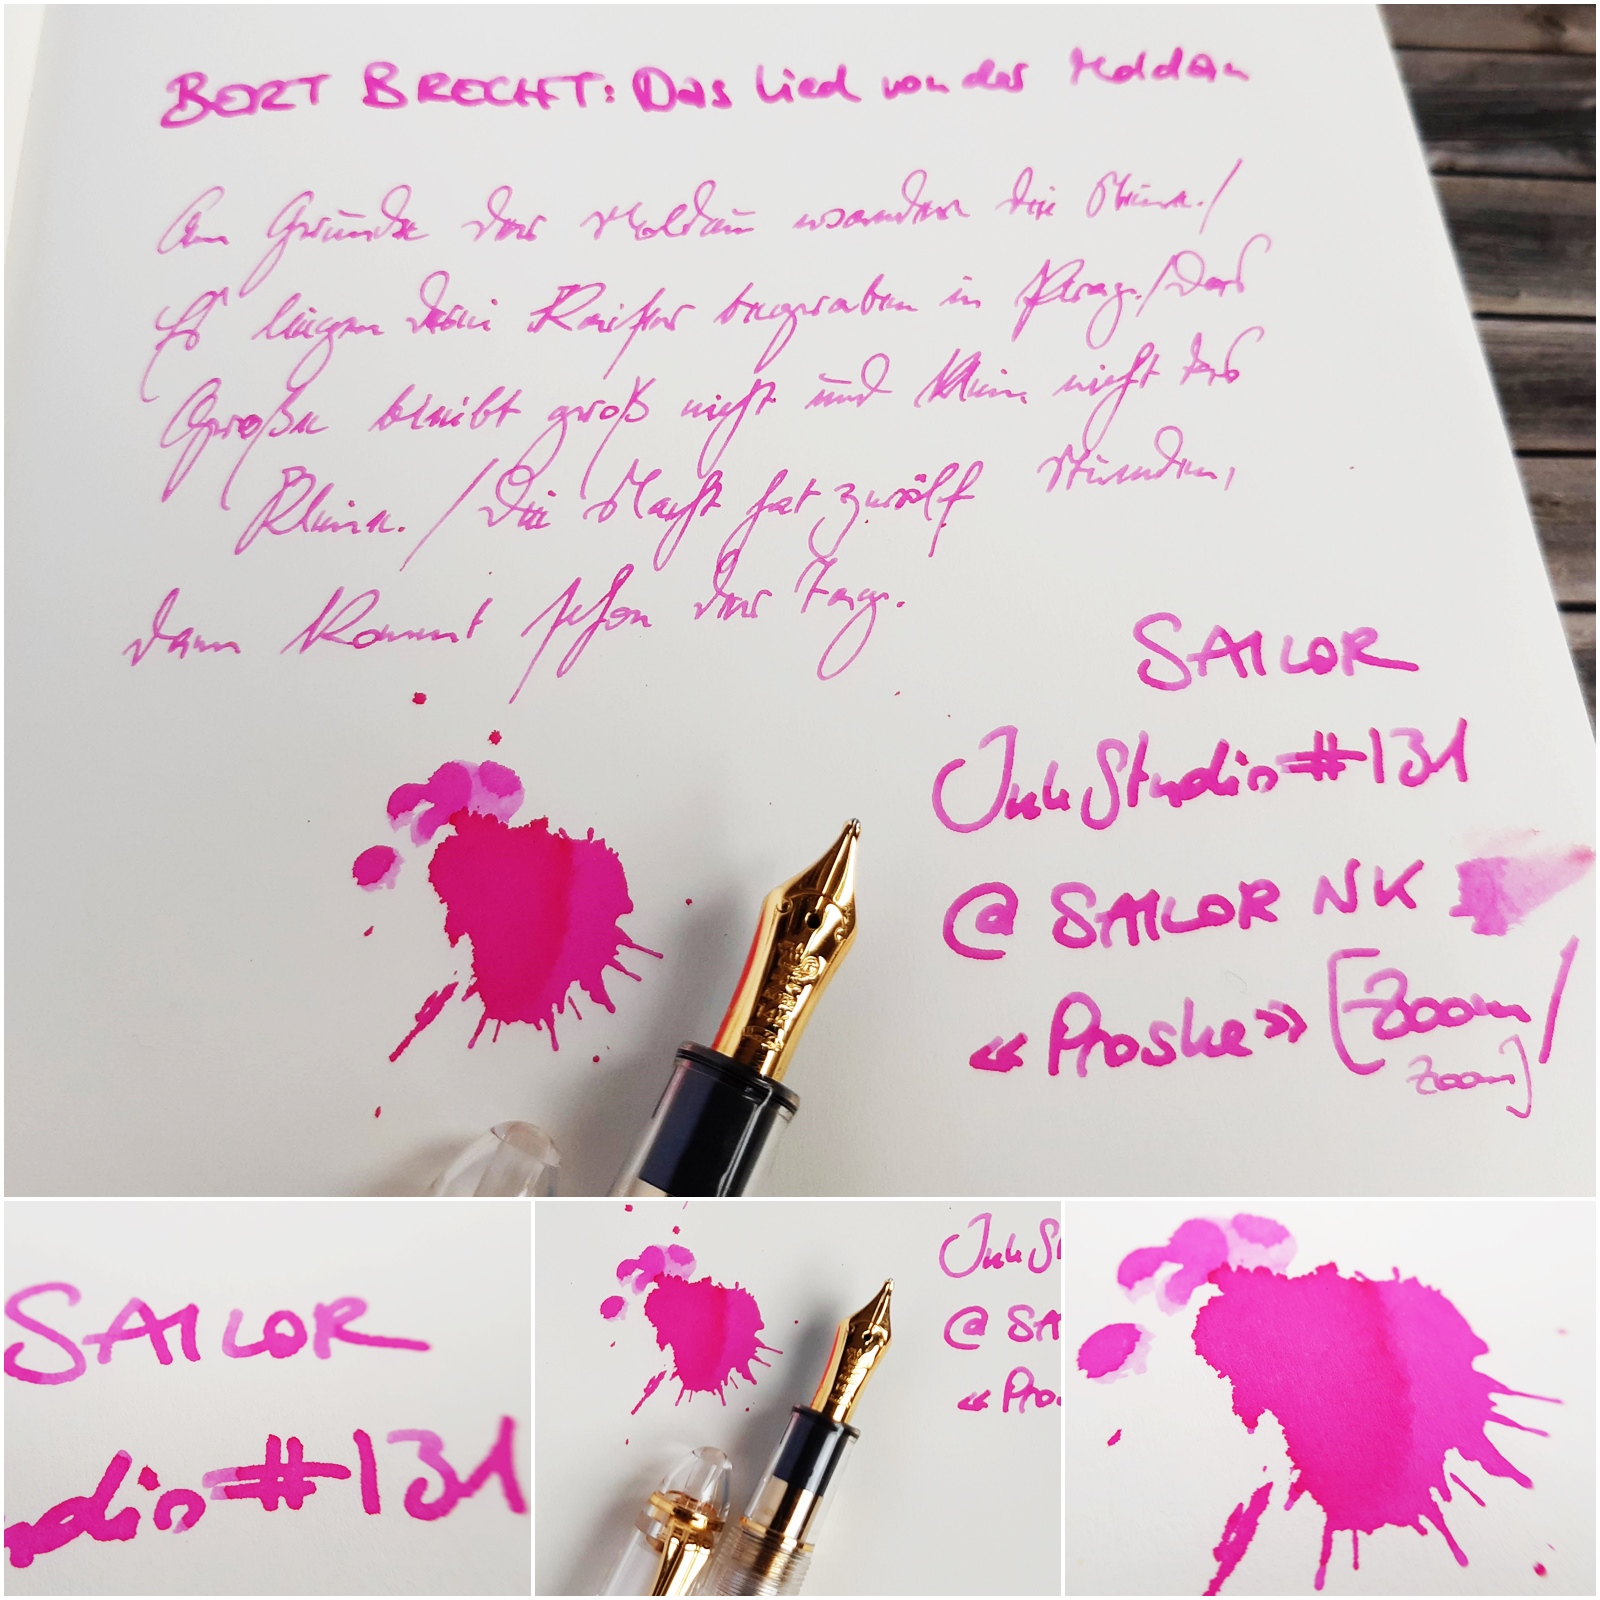 BERT BRECHT: Das Lied von der Moldau
Am Grunde der Moldau wandern die Steine./
Es liegen drei Kaiser begraben in Prag./Das
Große bleibt groß nicht und klein nicht das
Kleine./Die Nacht hat zwölf Stunden,
dann kommt schon der Tag.
SAILOR
Ink Studio #131
@ SAILOR NK
«Proske» [Zoom/
Zoom]
SAILOR
udio #131
Ink St
@ SA
«Pro